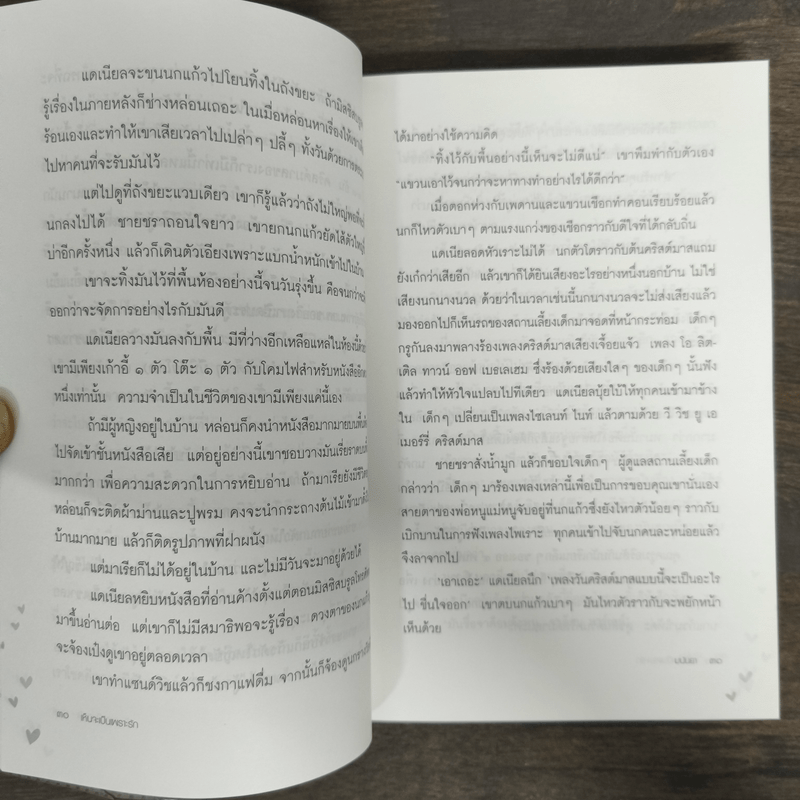 แดเนียลจะขนนกแก้วไปโยนทิ้งในถังขยะ
รู้เรื่องในภายหลังก็ช่างหล่อนเถอะ ในเมื่อหล่อนหาเรื่อง
ร้อนเองและทำให้เขาเสียเวลาไปเปล่าๆ ปลี้ๆ ทั้งวันด้วย
ไปหาคนที่จะรับมันไว้
แต่ไปดูที่ถังขยะแวบเดียว เขาก็รู้แล้วว่าถังไม่ใหญ่
นกลงไปได้ ชายชราถอนใจยาว เขายกนกแก้วยัดใส่
บ่าอีกครั้งหนึ่ง แล้วก็เดินตัวเอียงเพราะแบกน้ำหนักเข้าไปใน
เขาจะทิ้งมันไว้ที่พื้นห้องอย่างนี้จนวันรุ่งขึ้น คือจนกว่า
ออกว่าจะจัดการอย่างไรกับมันดี
แดเนียลวางมันลงกับพื้น มีที่ว่างอีกเหลือแหล่ในห้องนี้
เขามีเพียงเก้าอี้ ๑ ตัว โต๊ะ ๑ ตัว กับโคมไฟสำหรับหนังสือ
หนึ่งเท่านั้น ความจำเป็นในชีวิตของเขามีเพียงแค่นี้เอง
ถ้ามีผู้หญิงอยู่ในบ้าน หล่อนก็คงนำหนังสือมากมายบน
ไปจัดเข้าชั้นหนังสือเสีย แต่อยู่อย่างนี้เขาชอบวางมันเรี่ยราด
มากกว่า เพื่อความสะดวกในการหยิบอ่าน ถ้ามาเรียยังมีชีวิต
หล่อนก็จะติดผ้าม่านและปูพรม คงจะนำกระถางต้นไม้เข้ามา
บ้านมากมาย แล้วก็ติดรูปภาพที่ฝาผนัง
แต่มาเรียก็ไม่ได้อยู่ในบ้าน และไม่มีวันจะมาอยู่ด้วยได้
แดเนียลหยิบหนังสือที่อ่านค้างตั้งแต่ตอนมิสซิสบรูล
มาขึ้นอ่านต่อ แต่เขาก็ไม่มีสมาธิพอจะรู้เรื่อง ดวงตาของ
จะจ้องเป๋งดูเขาอยู่ตลอดเวลา
เขาทำแซนด์วิชแล้วก็ชงกาแฟดื่ม จากนั้นก็จ้อง
เดิมจะเป็นเพราะรัก
ได้มาอย่างใช้ความคิด
"ทิ้งไว้กับพื้นอย่างนี้เห็นจะไม่ดีแน่" เขาพึมพำกับตัวเอง
"แขวนเอาไว้จนกว่าจะหาทางทำอย่างไรได้ดีกว่า"
เมื่อตอกห่วงกับเพดานและแขวนเชือกทำคอนเรียบร้อยแล้ว
นกก็ไหวตัวเบาๆ ตามแรงแกว่งของเชือกราวกับดีใจที่ได้กลับถิ่น
แดเนียลอดหัวเราะไม่ได้ นกตัวโตราวกับต้นคริสต์มาสแถม
ยังเก๋กว่าเสียอีก แล้วเขาก็ได้ยินเสียงอะไรอย่างหนึ่งนอกบ้าน ไม่ใช่
เสียงนกนางนวล ด้วยว่าในเวลาเช่นนี้นกนางนวลจะไม่ส่งเสียงแล้ว
มองออกไปก็เห็นรถของสถานเลี้ยงเด็กมาจอดที่หน้ากระท่อม เด็กๆ
กรูกันลงมาพลางร้องเพลงคริสต์มาสเสียงเจื้อยแจ้ว เพลง โอ ลิต-
เติล ทาวน์ ออฟ เบธเลเฮม ซึ่งร้องด้วยเสียงใสๆ ของเด็กๆ นั้นฟัง
แล้วทำให้หัวใจแปลบไปทีเดียว แดเนียลบุ้ยใบ้ให้ทุกคนเข้ามาข้าง
ใน เด็กๆ เปลี่ยนเป็นเพลงไซเลนท์ ไนท์ แล้วตามด้วย วี วิช ยู เอ
เมอร์รี่ คริสต์มาส
ชายชราสั่งน้ำมูก แล้วก็ขอบใจเด็กๆ ผู้ดูแลสถานเลี้ยงเด็ก
กล่าวว่า เด็กๆ มาร้องเพลงเหล่านี้เพื่อเป็นการขอบคุณเขานั่นเอง
สายตาของพ่อหนูแม่หนูจับอยู่ที่นกแก้วซึ่งยังไหวตัวน้อยๆ ราวกับ
เบิกบานในการฟังเพลงไพเราะ ทุกคนเข้าไปจับนกคนละหน่อยแล้ว
จึงลาจากไป
'เอาเถอะ' แดเนียลนึก 'เพลงวันคริสต์มาสแบบนี้จะเป็นอะไร
ไป ชื่นใจออก' เขาตบนกแก้วเบาๆ มันไหวตัวราวกับจะพยักหน้า
เห็นด้วย